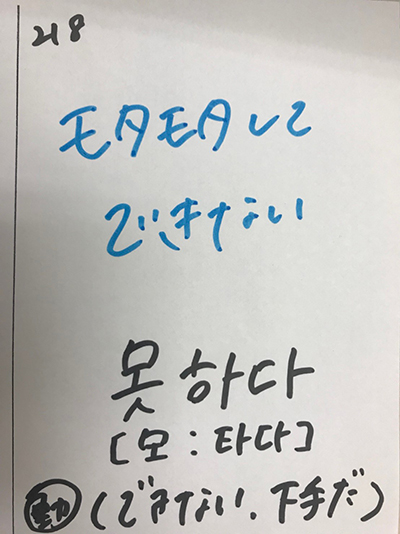 218
モタモタして
できない
못하다
[모:타다]
動(できない.下手だ)